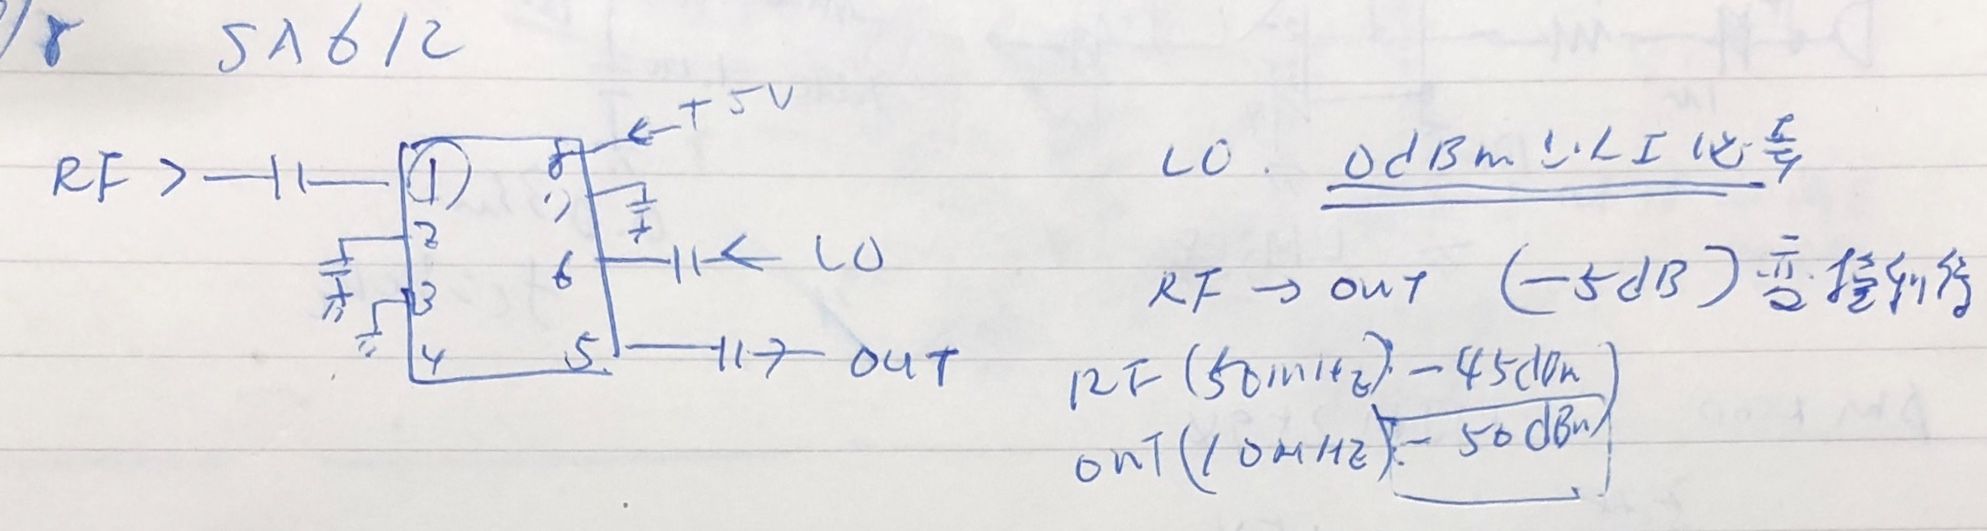 SA612
+5V
RF > 1 8
2 7
6 LO
3
4 5 OUT
LO. 0dBm以上必要
RF → OUT (-5dB) 変換利得
RF (50MHz) -45dBm
OUT (10MHz) -50dBm